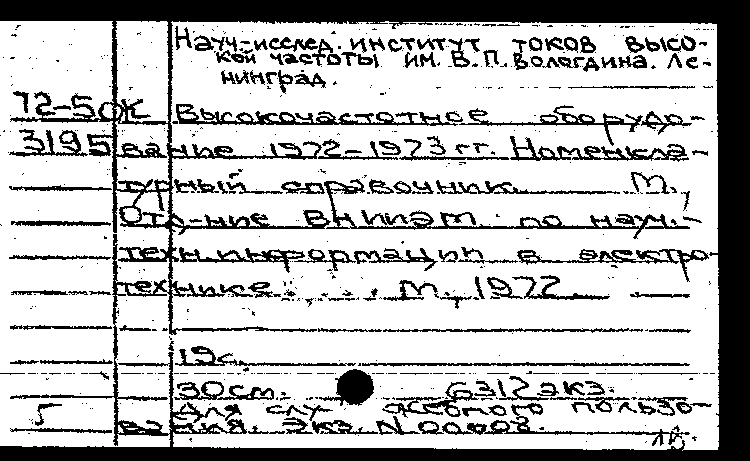 Науч-исслед. институт токов высо-
кой частоты им. В. П. Вологдина. Ле-
нинград.
72-5 Высокочастотное оборудо-
3195 вание 1972-1973 гг. Номенкла-
турный справочник. М.,
Отд-ние ВНИИЭМ по науч.-
техн. информации в электро-
технике. М., 1972
19с.
30см. 631 экз.
Для служебного пользо-
5 вания. Экз. N 00008.